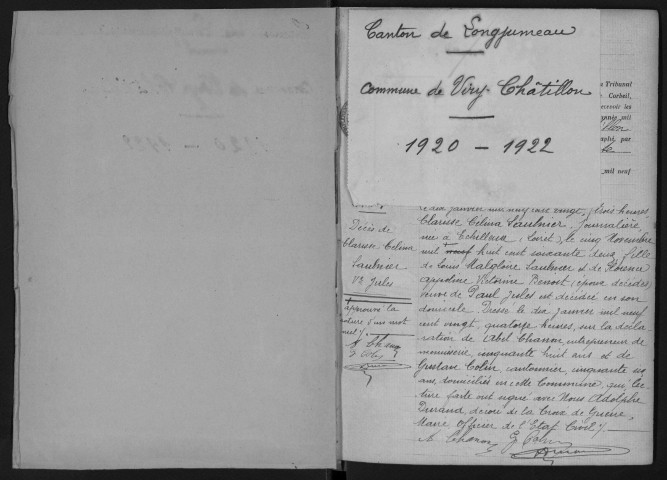 Canton de Longjumeau
Commune de Viry-Châtillon
1920 - 1922
Tribunal
Corbeil,
les
mil
par
mil neuf
Décès de
Clarisse Célina
Saulnier
Vve Jules
approuvé la
rature d'un mot
nul
le dix janvier mil neuf cent vingt, trois heures
Clarisse Célina Saulnier, journalière
née à Echilleuses (Loiret), le cinq Novembre
mil neuf huit cent soixante deux, fille
de Louis Saulnier et de
Victorine Benoist, époux décédés,
veuve de Paul Jules est décédée en son
domicile. Dressé le dix janvier mil neuf
cent vingt, quatorze heures, sur la décla
ration de Abel Chanon, entrepreneur de
menuiserie, cinquante huit ans et de
Gustave Colin, cantonnier, cinquante
ans, domiciliés en cette Commune, qui, lec
ture faite ont signé avec Nous Adolphe
Durand, décoré de la Croix de Guerre,
Maire Officier de l'Etat Civil
A. Chanon G. Colin